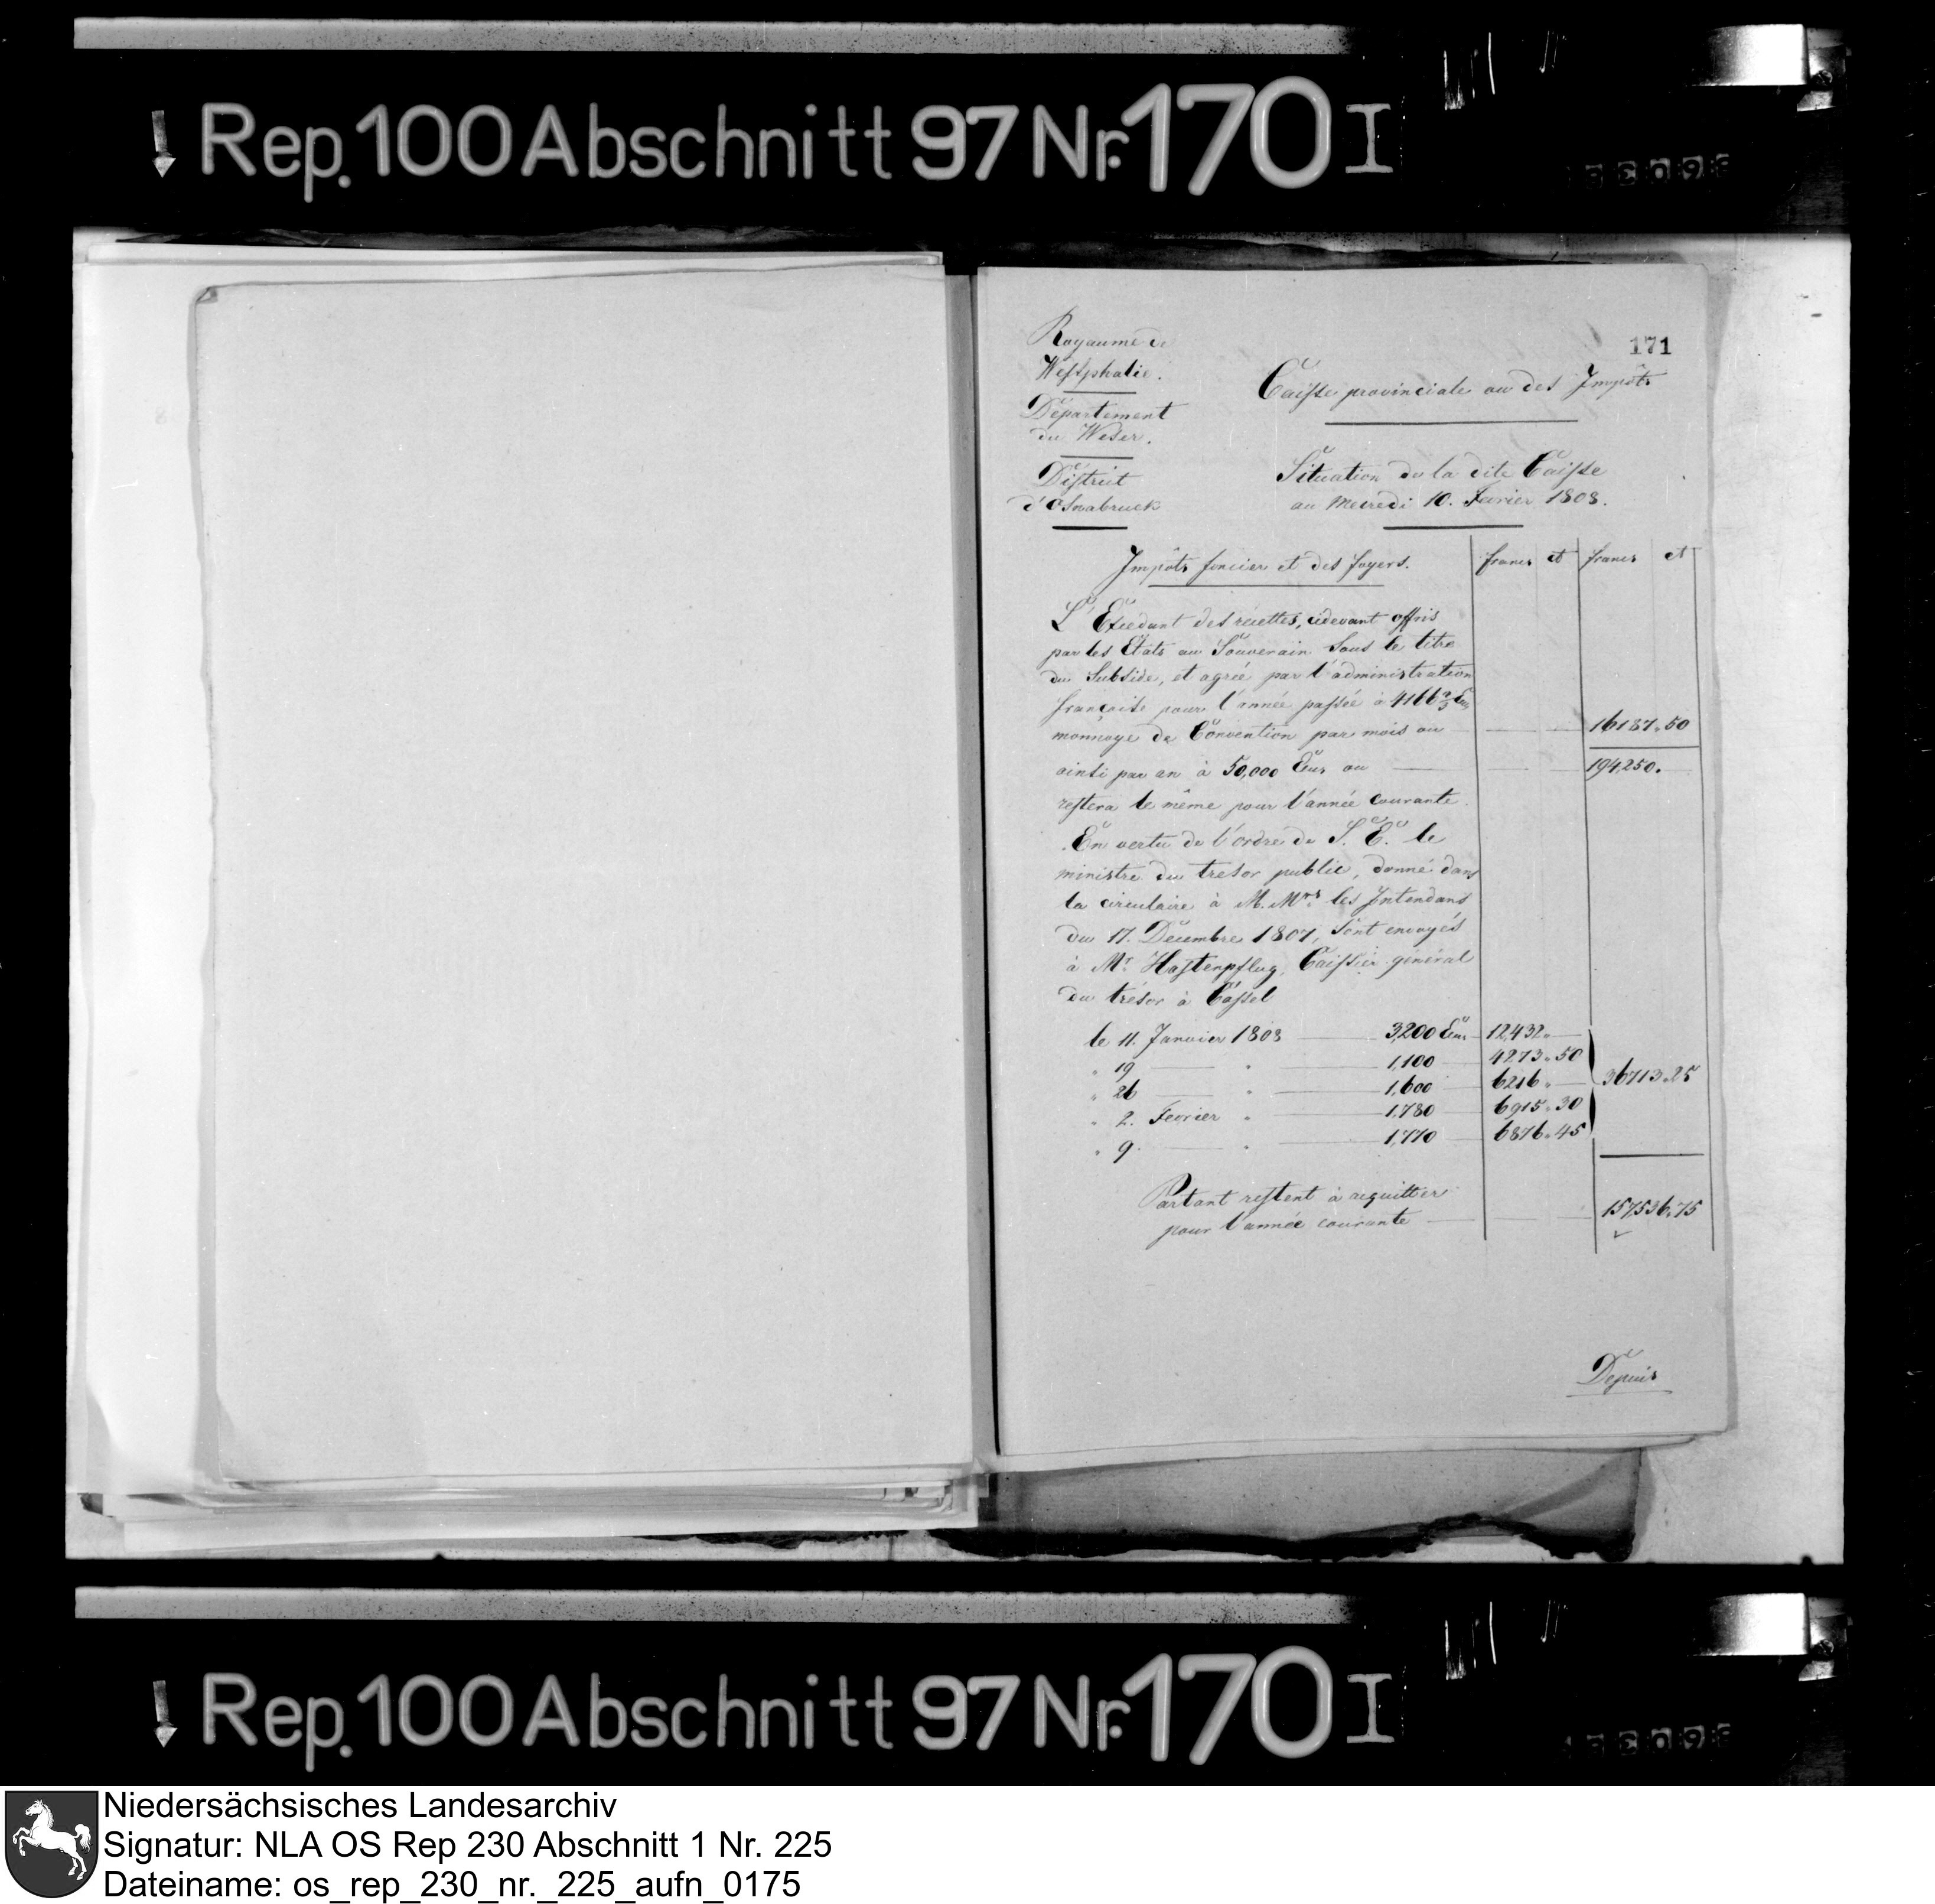 Rep. 100 Abschnitt 97 Nr. 170 I
171
Royaume de
Westphalie.
Département
du Weser.
District
d'Osnabruck
Caisse provinciale ou des Impôts
Situation de la dite Caisse
au Mecredi 10. Fevrier 1808.
Impôts foncier et des foyers.
francs ct francs ct
L'Excedant des recettes, cidevant offris
par les Etats au Souverain sous le titre
du Subside, et agréé par l'administration
françoise pour l'année passée à 4166 2/3 Ecus
monnoye de Convention par mois ou 16187. 50
ainsi par an à 50,000 Ecus ou 194,250.
restera le même pour l'année courante.
En vertu de l'ordre de S. E. le
ministre du tresor public, donné dans
la circulaire à M. Mrs. les Intendans
du 17. Decembre 1807, sont envoyés
à Mr. Hastenpflug, Caissier général
du trésor à Cassel
le 11. Janvier 1808 3,200 Ecus 12,432. —
" 19 — " 1,100 4273. 50
" 26 — " 1,600 6216. — 36713. 25
" 2. Fevrier " 1,780 6915. 30
" 9. — " 1,770 6876. 45
Partant restent à acquitter
pour l'année courante 157536. 75
Depuis
Rep. 100 Abschnitt 97 Nr. 170 I
Niedersächsisches Landesarchiv
Signatur: NLA OS Rep 230 Abschnitt 1 Nr. 225
Dateiname: os_rep_230_nr._225_aufn_0175